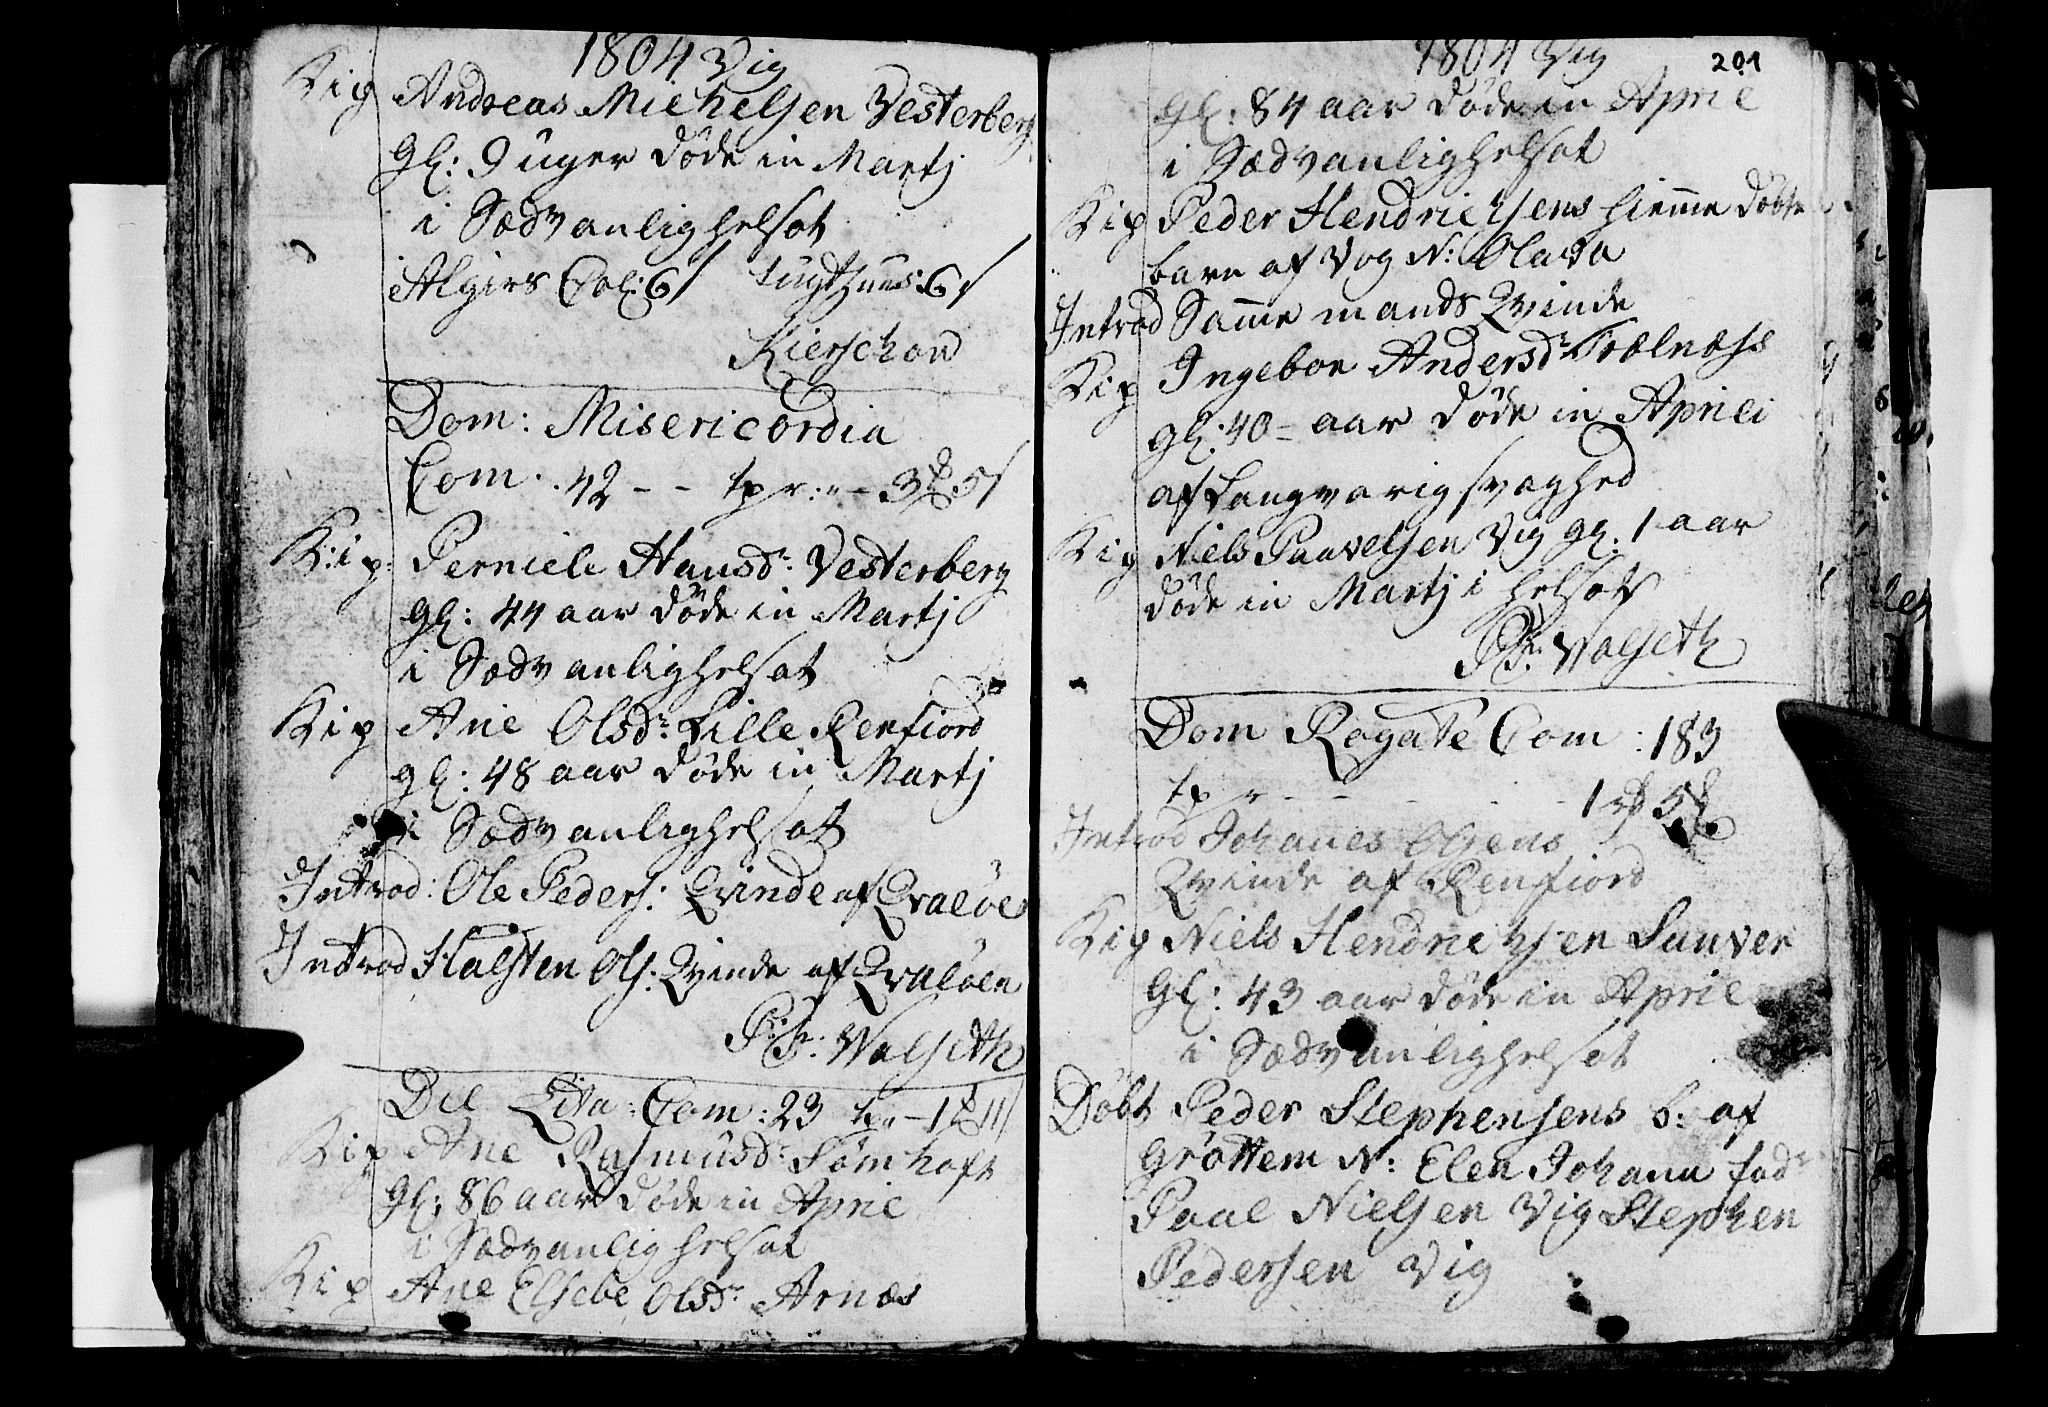 1804 Vig
Kip Andreas Michelsen Vesterberg
gl: 9 uger døde in Martj
i Sædvanlig helsot
Algiers Col: 6 s Tugthuus: 6 s
Kierschow
Dom: Misericordia
Com. 42 - - tpr: - 3 5 s
K:ip: Perniele Hansdr: Vesterberg
gl: 44 aar døde in Martj
i Sædvanlig helsot
Kip Ane Olsdr: Lille Renfiord
gl: 48 aar døde in Martj
i Sædvanlig helsot
Introd: Ole Peders: Qvinde af Qvaløe
Introd Halsten Ols: Qvinde af Qvaløen
P: Fr: Walseth
Die Lita: Com: 23 tpr - 1 11
Kip Ane Rasmusdr: Sømhoft
gl: 86 aar døde in April
i Sædvanlig helsot
Kip Ane Elsebe Olsdr: Arnæs
1804 Vig 201
gl: 84 aar døde in April
i Sædvanlig helsot
Kip Peder Hendrichsens hiemme døbte
barn af Vog N: Olava
Introd Samme mands Qvinde
Kip Ingebor Andersdr: Trælnæss
gl: 40 - aar døde in Aprili
af Langvarig svaghed
Kip Niels Paavelsen Vig gl: 1 aar
døde in Martj i helsot
P: Fr: Walseth
Dom Rogate Com: 183
tpr - - - - 1 rd 5
Introd Johanes Olsens
Qvinde af Renfiord
Kip Niels Hendrichsen Sauver
gl: 43 aar døde in April
i Sædvanlig helsot
Døbt Peder Stephensens b: af
Grøttem N: Elen Johana fad:
Paal Nielsen Vig Stephen
Pedersen Vig